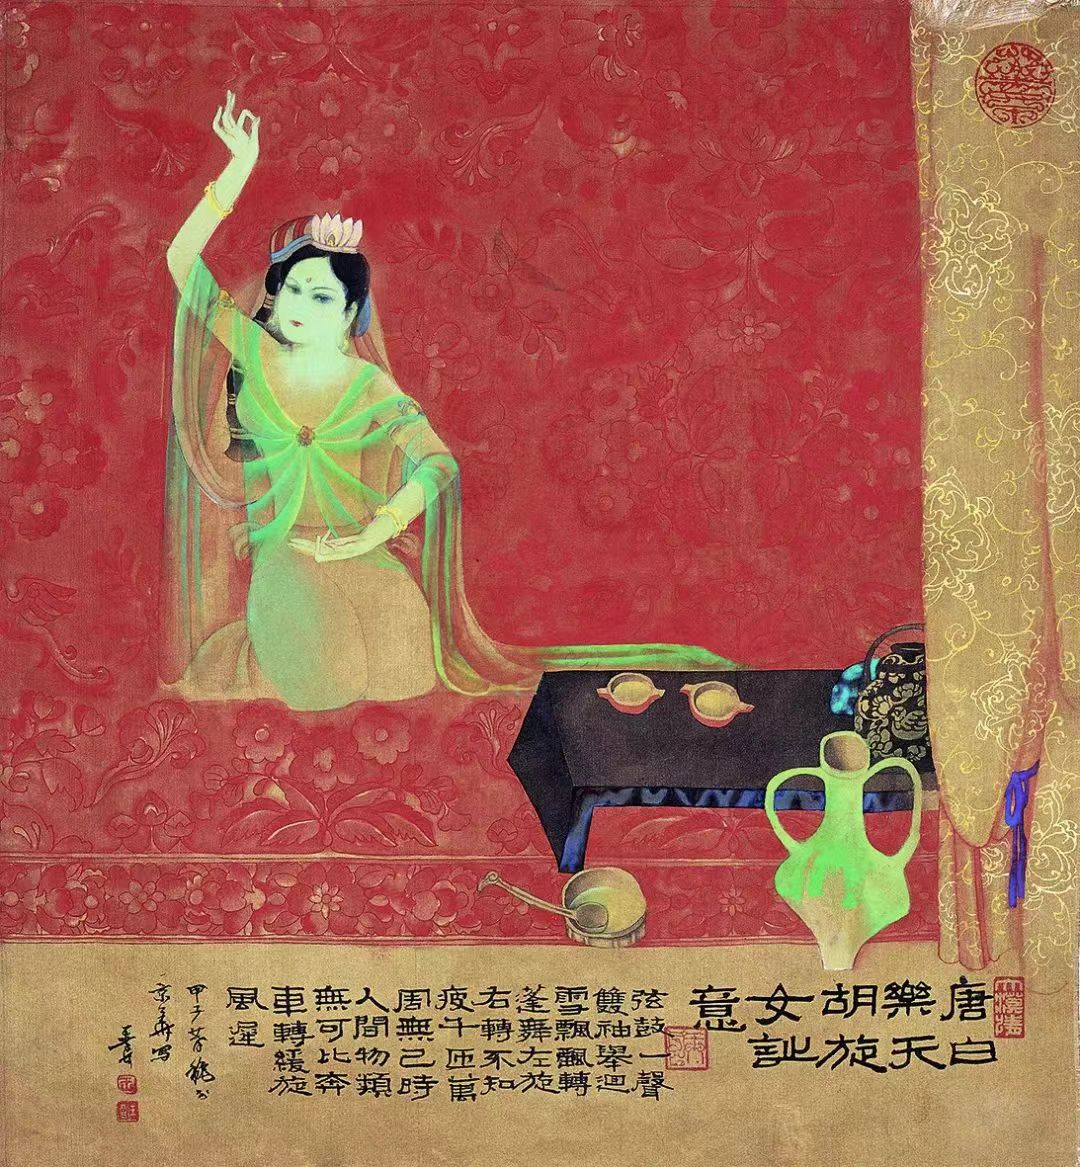 唐白
樂天
胡旋
女訨
意
弦鼓一聲
雙袖舉迴
雪飄飄轉
蓬舞左旋
右轉不知
疲千匝萬
周無已時
人間物類
無可比奔
車轉緩旋
風遲
甲子
京華寫